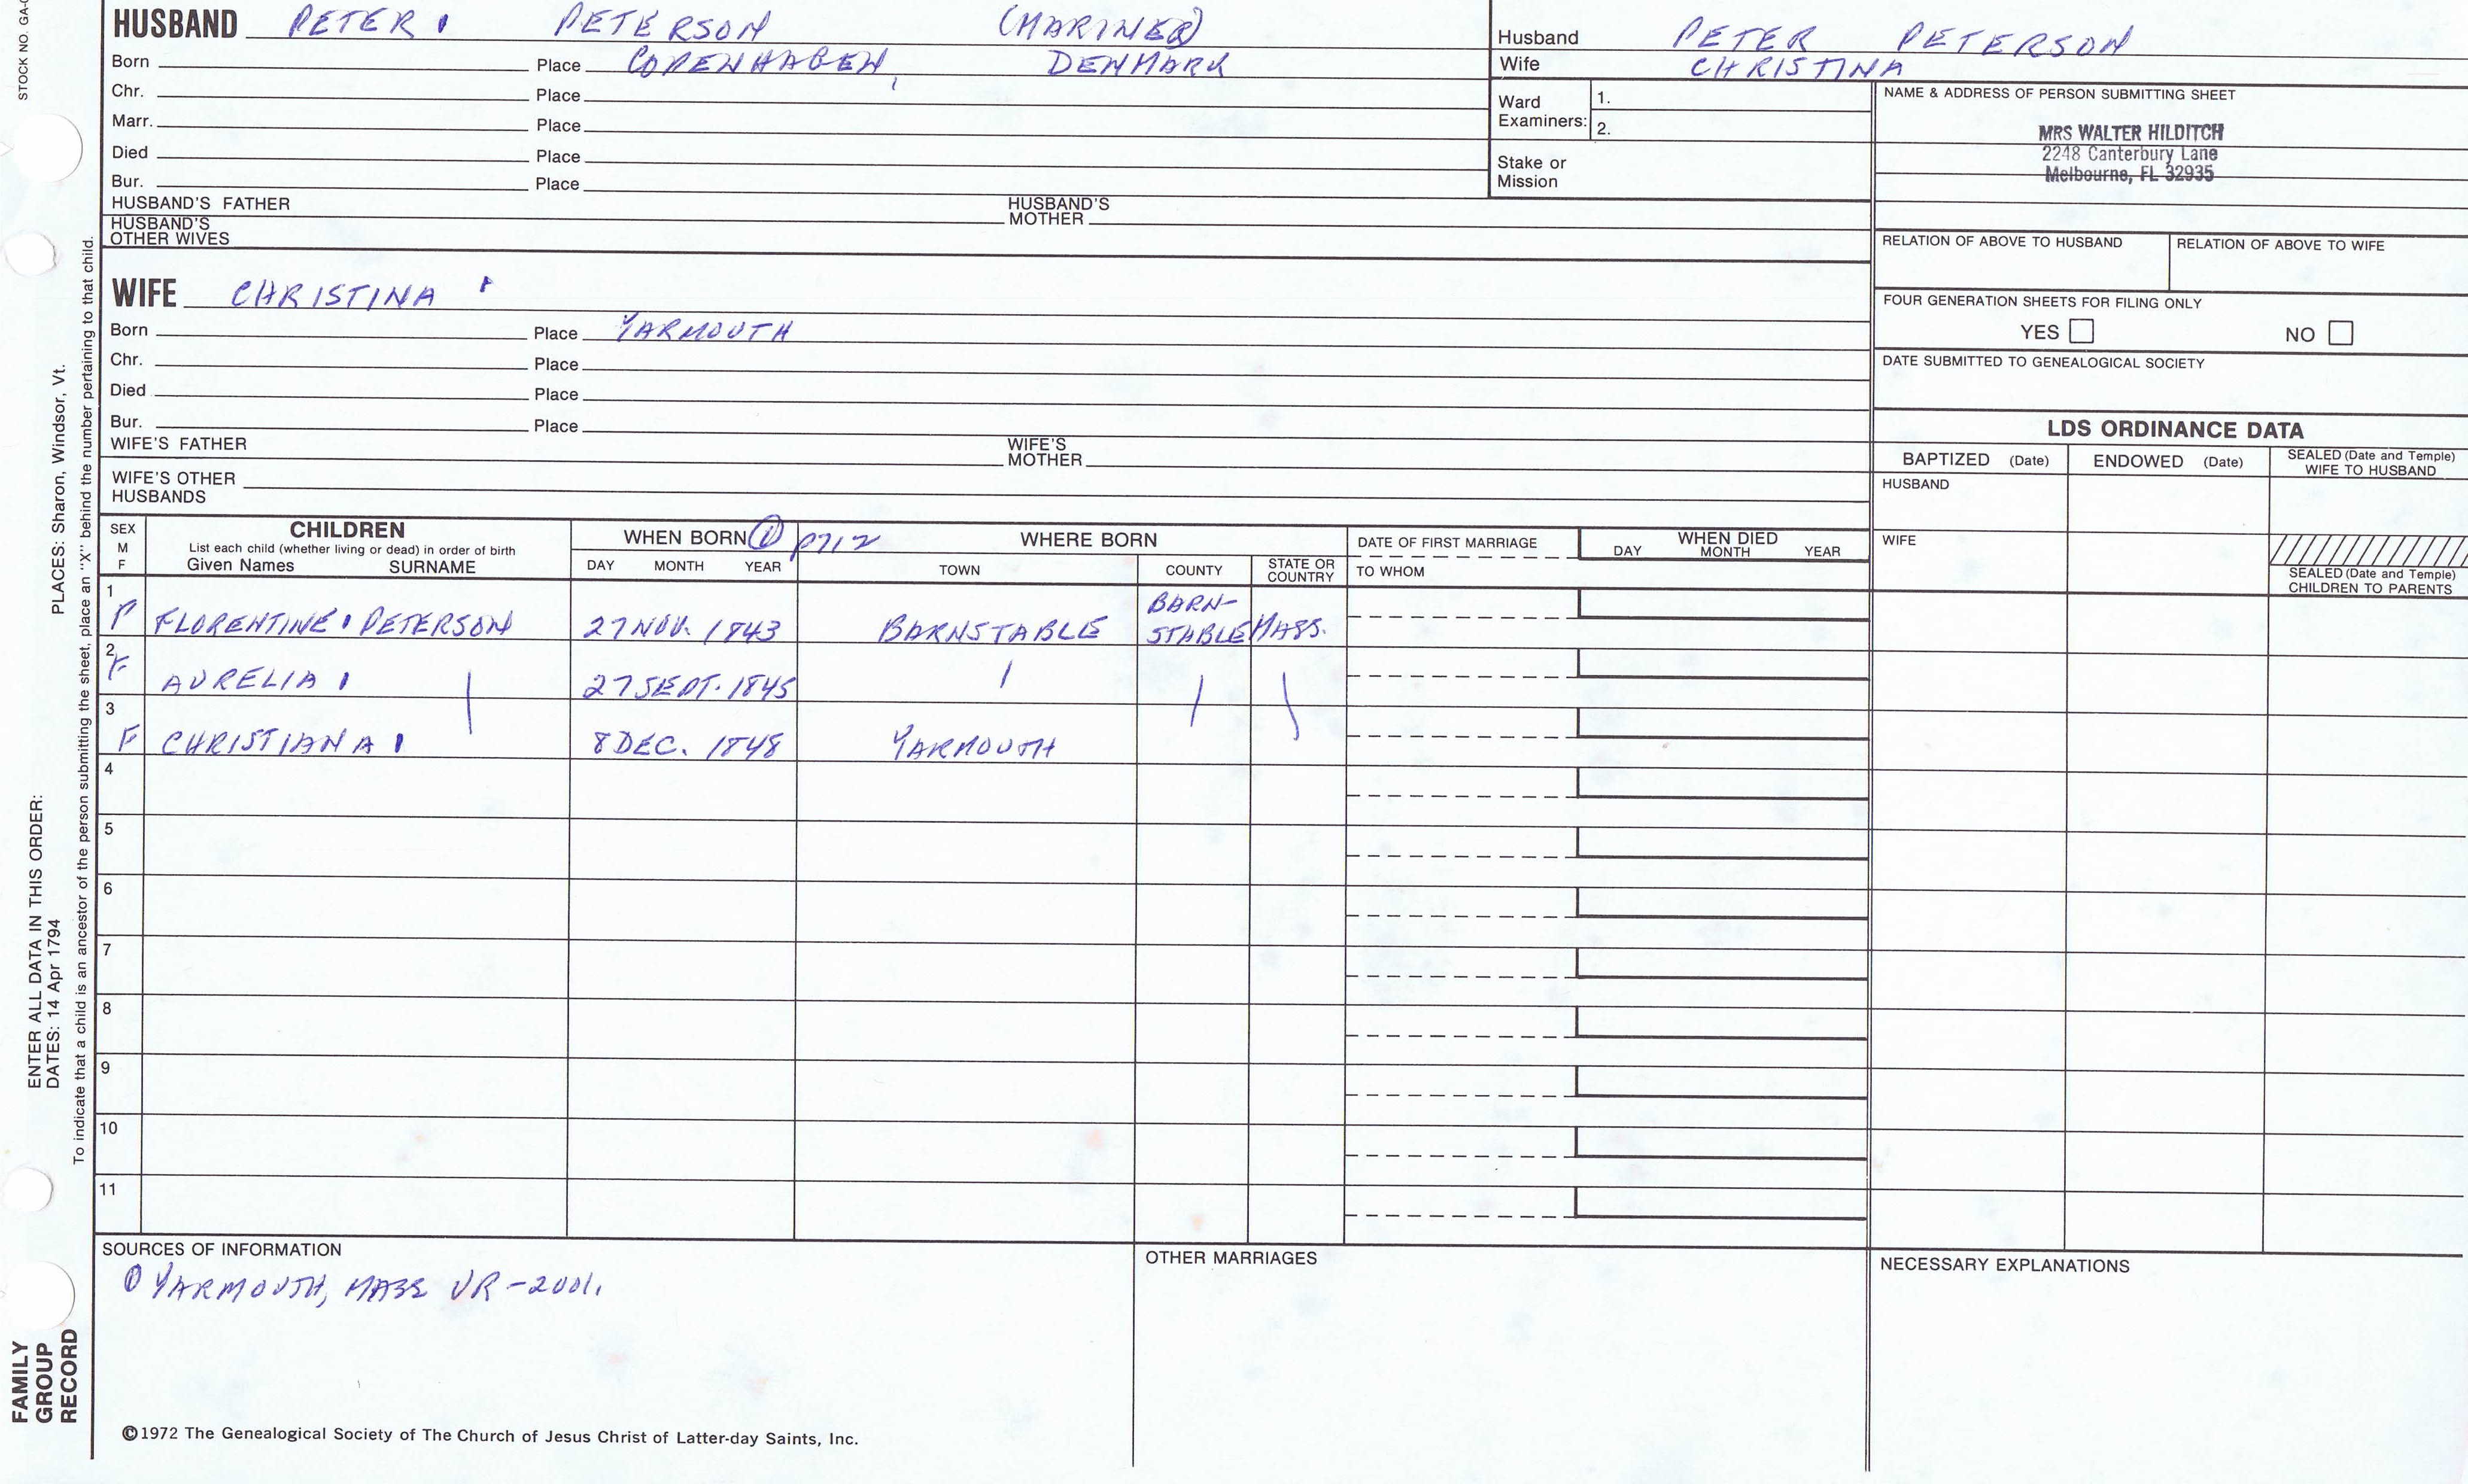 STOCK NO. GA-
HUSBAND PETER PETERSON (MARINER)
Born Place COPENHAGEN, DENMARK
Chr. Place
Marr. Place
Died Place
Bur. Place
HUSBAND'S FATHER HUSBAND'S MOTHER
HUSBAND'S OTHER WIVES
Husband PETER PETERSON
Wife CHRISTINA
Ward Examiners: 1.
2.
Stake or Mission
NAME & ADDRESS OF PERSON SUBMITTING SHEET
MRS WALTER HILDITCH
2248 Canterbury Lane
Melbourne, FL 32935
RELATION OF ABOVE TO HUSBAND RELATION OF ABOVE TO WIFE
FOUR GENERATION SHEETS FOR FILING ONLY
YES NO
DATE SUBMITTED TO GENEALOGICAL SOCIETY
WIFE CHRISTINA
Born Place YARMOUTH
Chr. Place
Died Place
Bur. Place
WIFE'S FATHER WIFE'S MOTHER
WIFE'S OTHER HUSBANDS
LDS ORDINANCE DATA
BAPTIZED (Date) ENDOWED (Date) SEALED (Date and Temple) WIFE TO HUSBAND
HUSBAND
WIFE
SEALED (Date and Temple) CHILDREN TO PARENTS
SEX M F
CHILDREN
List each child (whether living or dead) in order of birth
Given Names SURNAME
WHEN BORN ① p712
DAY MONTH YEAR
WHERE BORN
TOWN COUNTY STATE OR COUNTRY
DATE OF FIRST MARRIAGE
TO WHOM
WHEN DIED
DAY MONTH YEAR
1 FLORENTINE PETERSON 27 NOV. 1843 BARNSTABLE BARN-STABLE MASS.
2 F AURELIA 27 SEPT. 1845
3 F CHRISTIANA 8 DEC. 1848 YARMOUTH
4
5
6
7
8
9
10
11
SOURCES OF INFORMATION
① YARMOUTH, MASS VR-2001.
OTHER MARRIAGES
NECESSARY EXPLANATIONS
©1972 The Genealogical Society of The Church of Jesus Christ of Latter-day Saints, Inc.
FAMILY GROUP RECORD
ENTER ALL DATA IN THIS ORDER:
DATES: 14 Apr 1794 PLACES: Sharon, Windsor, Vt.
To indicate that a child is an ancestor of the person submitting the sheet, place an "X" behind the number pertaining to that child.